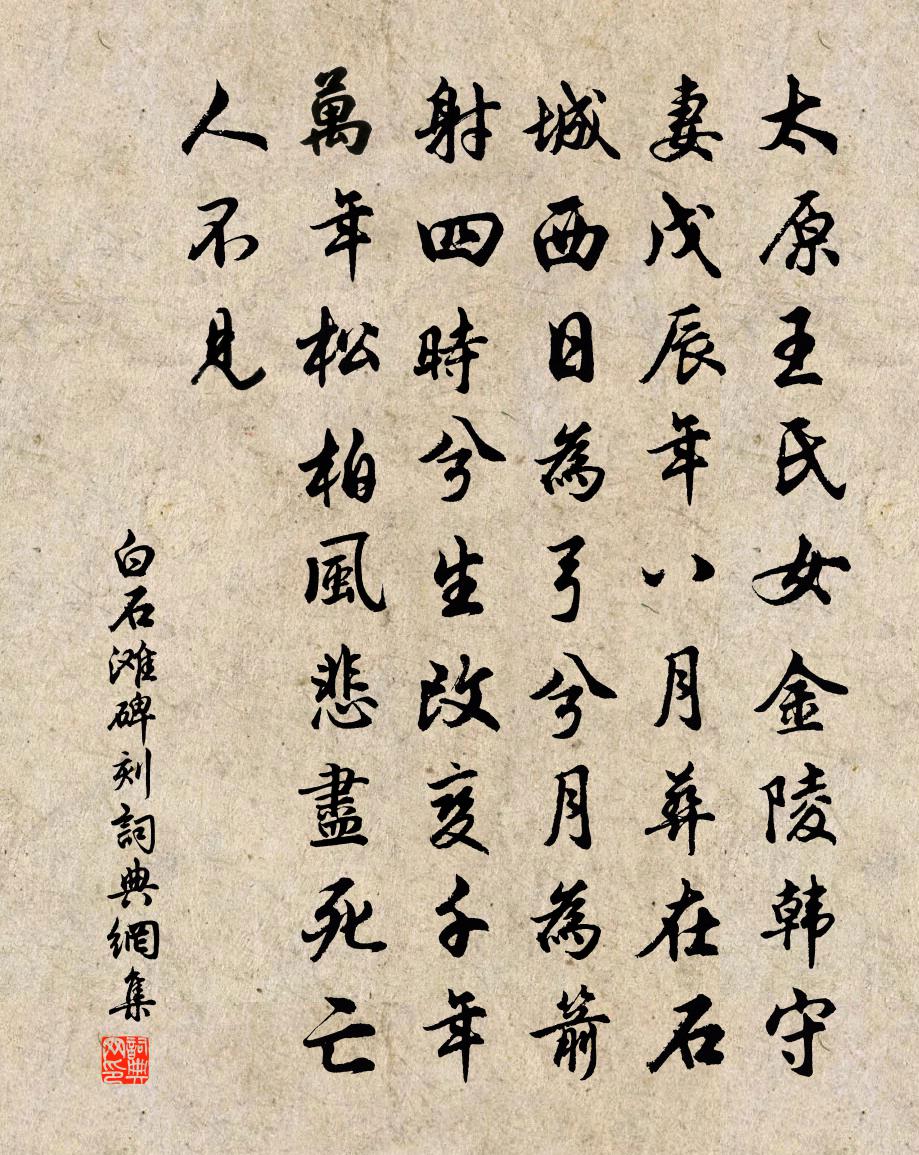 太原王氏女金陵韩守
妻戊辰年八月葬在石
城西日為弓兮月為箭
射四時兮生改变千年
萬年松柏風悲盡死亡
人不見
白石滩碑刻詞典網集
詞典网印